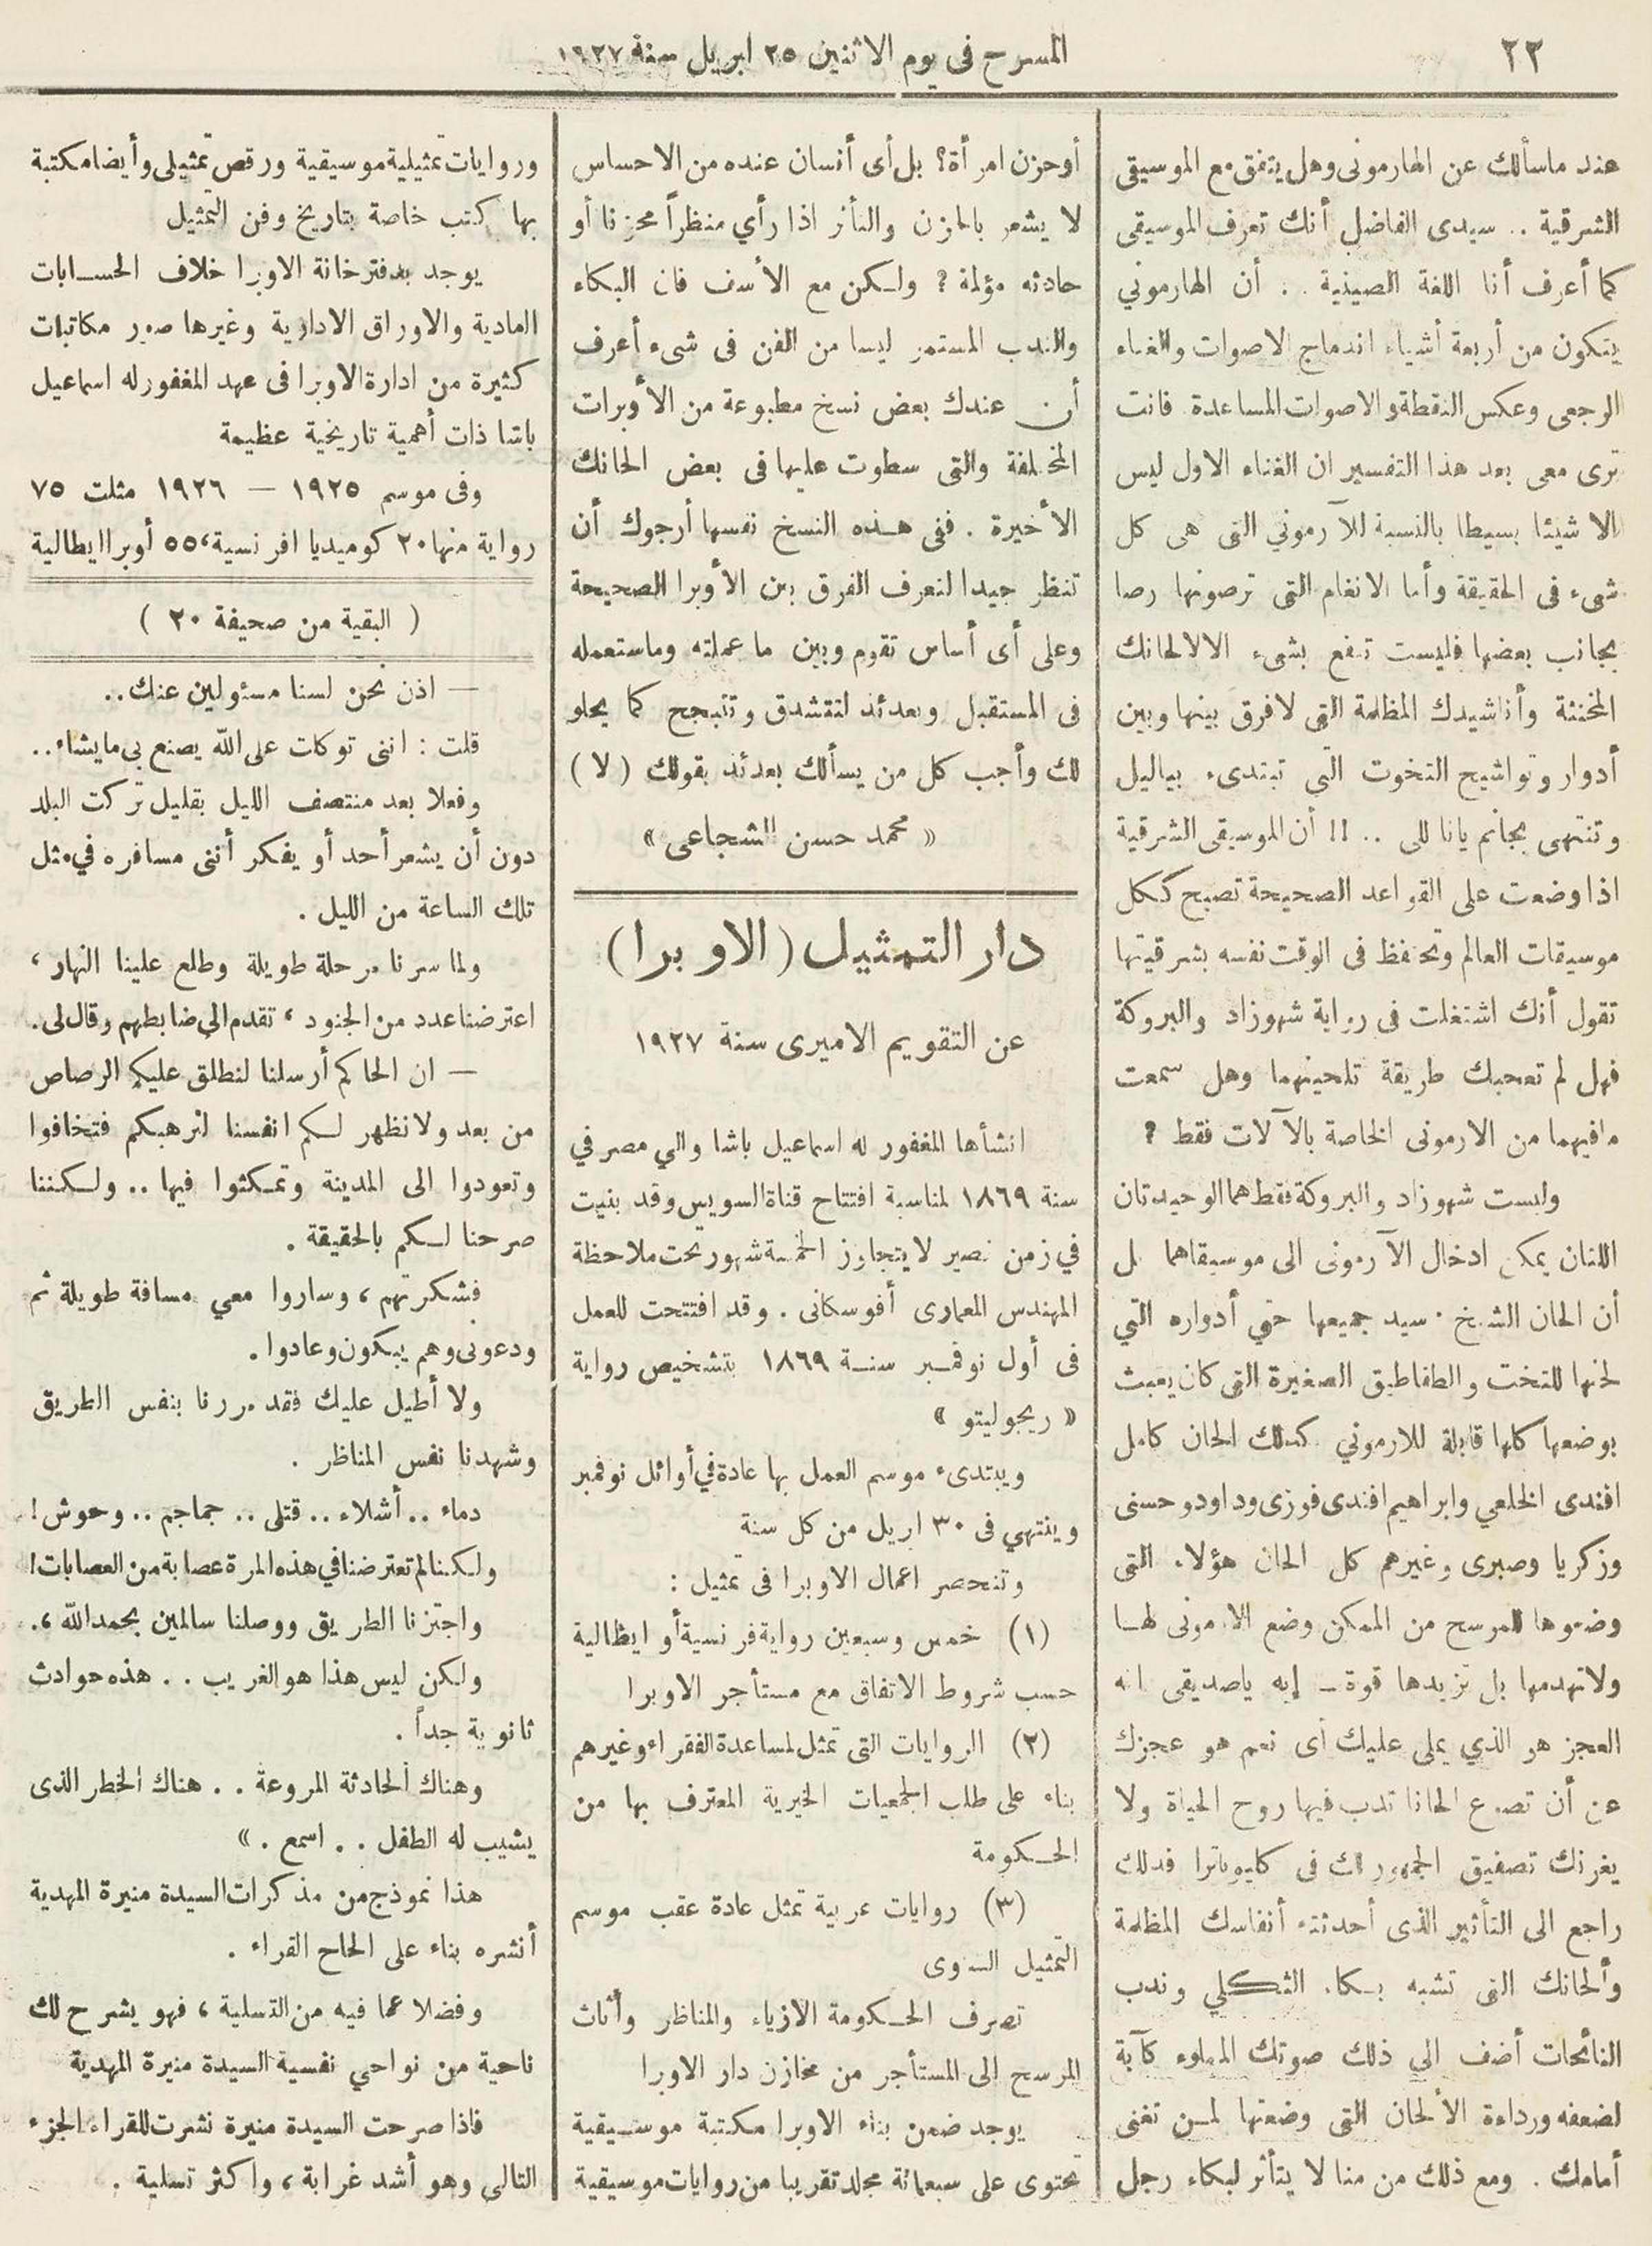 ٢٢
المسرح فى يوم الاثنين ٢٥ ابريل سنة ١٩٢٧
عند ماسألك عن الهارمونى وهل يتفق مع الموسيقى
الشرقية .. سيدى الفاضل أنك تعرف الموسيقى
كما أعرف أنا اللغة الصينية .. أن الهارموني
يتكون من أربعة أشياء اندماج الاصوات والغناء
الرجعى وعكس النقطة والاصوات المساعدة فانت
ترى معى بعد هذا التفسير ان الغناء الاول ليس
الا شيئا بسيطا بالنسبة للآرموني التى هى كل
شىء فى الحقيقة وأما الانغام التى ترصونها رصا
بجانب بعضها فليست تنفع بشىء الا لالحانك
المخنثة وأناشيدك المظلمة التى لافرق بينها وبين
أدوار وتواشيح التخوت التى تبتدىء بياليل
وتنتهى بجانم يانا للى .. !! أن الموسيقى الشرقية
اذا وضعت على القواعد الصحيحة تصبح ككل
موسيقات العالم وتحتفظ فى الوقت نفسه بشرقيتها
تقول أنك اشتغلت فى رواية شهوزاد والبروكة
فهل لم تعجبك طريقة تلحينهما وهل سمعت
مافيهما من الارمونى الخاصة بالآلات فقط ؟
وليست شهوزاد والبروكة فقط هما الوحيدتان
اللتان يمكن ادخال الآرمونى الى موسيقاهما بل
أن الحان الشيخ سيد جميعها حتي أدواره التي
لحنها للتخت والطقاطيق الصغيرة التى كان يعبث
بوضعها كلها قابلة للارموني كذلك الحان كامل
افندى الخلعي وابراهيم افندى فوزى وداود حسنى
وزكريا وصبرى وغيرهم كل الحان هؤلاء التى
وضعوها للمرسح من الممكن وضع الارمونى لها
ولاتهدمها بل تزيدها قوة ـ إيه ياصديقى انه
العجز هو الذي يملى عليك أى نعم هو عجزك
عن أن تصنع الحانا تدب فيها روح الحياة ولا
يغرنك تصفيق الجمهور لك فى كليوباترا فذلك
راجع الى التأثير الذى أحدثته أنفاسك المظلمة
وألحانك التى تشبه بكاء الثكلي وندب
النائحات أضف الي ذلك صوتك المملوء كآبة
لضعفه ورداءة الألحان التى وضعتها لمن تغنى
أمامك . ومع ذلك من منا لا يتأثر لبكاء رجل
أوحزن امرأة؟ بل أى أنسان عنده من الاحساس
لا يشعر بالحزن والتأثر اذا رأي منظراً محزنا أو
حادثه مؤلمة ؟ ولكن مع الأسف فان البكاء
والندب المستمر ليسا من الفن فى شىء أعرف
أن عندك بعض نسخ مطبوعة من الأوبرات
المختلفة والتى سطوت عليها فى بعض الحانك
الأخيرة . ففى هذه النسخ نفسها أرجوك أن
تنظر جيدا لتعرف الفرق بين الأوبرا الصحيحة
وعلى أى أساس تقوم وبين ما عملته وماستعمله
فى المستقبل وبعدئذ لتتشدق وتتبجح كما يحلو
لك وأجب كل من يسألك بعدئذ بقولك ( لا )
« محمد حسن الشجاعى »
دار التمثيل ( الاوبرا )
عن التقويم الاميرى سنة ١٩٢٧
انشأها المغفور له اسماعيل باشا والي مصر في
سنة ١٨٦٩ لمناسبة افتتاح قناة السويس وقد بنيت
في زمن قصير لا يتجاوز الخمسة شهور تحت ملاحظة
المهندس المعمارى أفوسكانى . وقد افتتحت للعمل
فى أول نوفمبر سنة ١٨٦٩ بتشخيص رواية
« ريجوليتو »
ويبتدىء موسم العمل بها عادة في أوائل نوفمبر
وينتهي فى ٣٠ ابريل من كل سنة
وتنحصر اعمال الاوبرا فى تمثيل :
(١) خمس وسبعين رواية فرنسية أو ايطالية
حسب شروط الاتفاق مع مستأجر الاوبرا
(٢) الروايات التى تمثل لمساعدة الفقراء وغيرهم
بناء على طلب الجمعيات الخيرية المعترف بها من
الحكومة
(٣) روايات عربية تمثل عادة عقب موسم
التمثيل السنوى
تصرف الحكومة الازياء والمناظر وأثاث
المرسح الى المستأجر من مخازن دار الاوبرا
يوجد ضمن بناء الاوبرا مكتبة موسيقية
تحتوى على سبعمائة مجلد تقريبا من روايات موسيقية
وروايات تمثيلية موسيقية ورقص تمثيلى وأيضا مكتبة
بها كتب خاصة بتاريخ وفن التمثيل
يوجد بدفترخانة الاوبرا خلاف الحسابات
المادية والاوراق الادارية وغيرها صور مكاتبات
كثيرة من ادارة الاوبرا فى عهد المغفور له اسماعيل
باشا ذات أهمية تاريخية عظيمة
وفى موسم ١٩٢٥ — ١٩٢٦ مثلت ٧٥
رواية منها ٢٠ كوميديا افرنسية، ٥٥ أوبرا ايطالية
( البقية من صحيفة ٢٠ )
— اذن نحن لسنا مسئولين عنك ..
قلت : اننى توكلت على الله يصنع بي مايشاء ..
وفعلا بعد منتصف الليل بقليل تركت البلد
دون أن يشعر أحد أو يفكر أننى مسافره في مثل
تلك الساعة من الليل .
ولما سرنا مرحلة طويلة وطلع علينا النهار ،
اعترضنا عدد من الجنود ، تقدم الي ضابطهم وقال لى .
— ان الحاكم أرسلنا لنطلق عليكم الرصاص
من بعد ولا نظهر لكم انفسنا لنرهبكم فتخافوا
وتعودوا الى المدينة وتمكثوا فيها .. ولكننا
صرحنا لكم بالحقيقة .
فشكرتهم ، وساروا معي مسافة طويلة ثم
ودعونى وهم يبكون وعادوا .
ولا أطيل عليك فقد مررنا بنفس الطريق
وشهدنا نفس المناظر .
دماء .. أشلاء .. قتلى .. جماجم .. وحوش !
ولكنا لم تعترضنا في هذه المرة عصابة من العصابات !
واجتزنا الطريق ووصلنا سالمين بحمد الله ،.
ولكن ليس هذا هو الغريب .. هذه حوادث
ثانوية جداً .
وهناك الحادثة المروعة .. هناك الخطر الذى
يشيب له الطفل .. اسمع . »
هذا نموذج من مذكرات السيدة منيرة المهدية
أنشره بناء على الحاح القراء .
وفضلا عما فيه من التسلية ، فهو يشرح لك
ناحية من نواحي نفسية السيدة منيرة المهدية
فاذا صرحت السيدة منيرة نشرت للقراء الجزء
التالى وهو أشد غرابة ، واكثر تسلية .